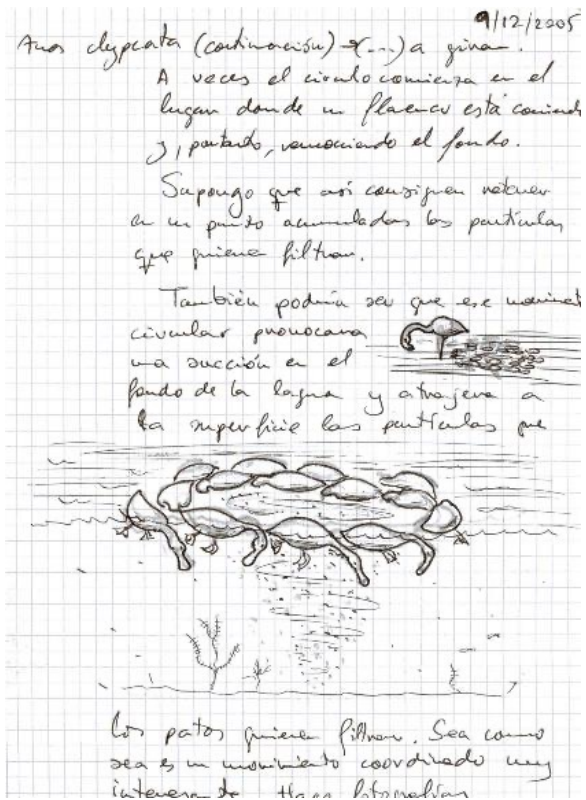 9/12/2205
Anas clypeata (continuación) → (...) a girar.
A veces el círculo comienza en el
lugar donde un flamenco está comiendo
y, portanto, removiendo el fondo.
Supongo que así consiguen retener
en un punto acumuladas las partículas
que quieren filtrar.
También podría ser que ese
circular provocara
una succión en el
fondo de la laguna y atrajera a
la superficie las partículas que
los patos quieren filtrar. Sea como
sea es un movimiento coordinado muy
interesante. Hago fotografías